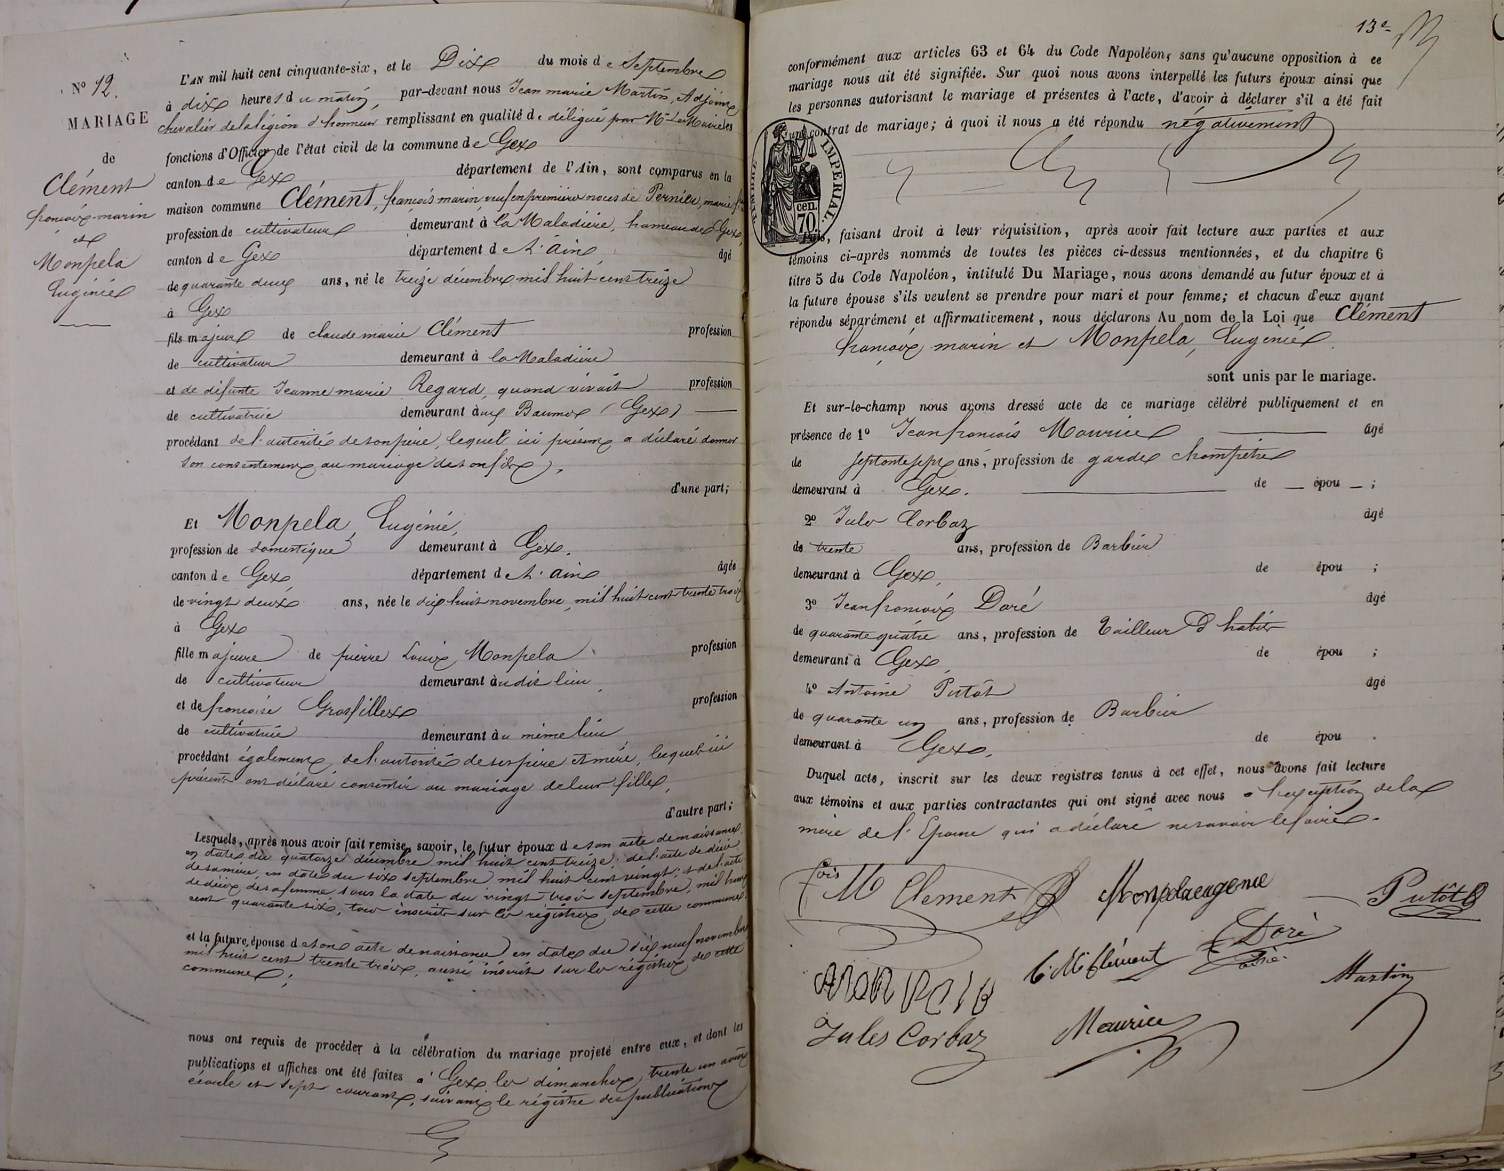 N° 12.
MARIAGE
de
Clément
françois-marin
et
Monpela
Eugénie
L'AN mil huit cent cinquante-six, et le Dix du mois de Septembre
à dix heures du matin, par-devant nous Jean marie Martin, Adjoint
chevalier de la légion d'honneur remplissant en qualité de délégué par Mr Le Maire les
fonctions d'Officier de l'état civil de la commune de Gex
canton de Gex département de l'Ain, sont comparus en la
maison commune Clément, françois marin, veuf en premières noces de Pernier, marie
profession de cultivateur demeurant à la Maladière, hameau de Gex,
canton de Gex département de l'Ain, âgé
de quarante deux ans, né le treize décembre mil huit cent treize
à Gex
fils majeur de claude marie Clément profession
de cultivateur demeurant à la Maladière
et de défunte Jeanne marie Regard, quand vivait profession
de cultivatrice demeurant aux Baumes (Gex)
procédant de l'autorité de son père, lequel ici présent a déclaré donner
son consentement au mariage de son fils,
d'une part;
Et Monpela, Eugénie,
profession de domestique demeurant à Gex,
canton de Gex département de l'Ain âgée
de vingt deux ans, née le dix huit novembre mil huit cent trente trois
à Gex
fille majeure de pierre Louis Monpela profession
de cultivateur demeurant audit lieu
et de françoise Grosfillex profession
de cultivatrice demeurant au même lieu
procédant également de l'autorité de ses père et mère, lesquels ici
présents ont déclaré consentir au mariage de leur fille,
d'autre part;
Lesquels, après nous avoir fait remise, savoir, le futur époux de son acte de naissance
en date du quatorze décembre mil huit cent treize; de l'acte de décès
de sa mère, en date du six septembre mil huit cent vingt; & de l'acte
de décès de sa femme, sous la date du vingt trois septembre, mil huit
cent quarante six, tous inscrits sur les registres de cette commune
et la future épouse de son acte de naissance en date du dix neuf novembre
mil huit cent trente trois, aussi inscrit sur les registres de cette
commune;
nous ont requis de procéder à la célébration du mariage projeté entre eux, et dont les
publications et affiches ont été faites à Gex les dimanches, trente un août
écoulé et sept courant, suivant le registre des publications
13e
conformément aux articles 63 et 64 du Code Napoléon, sans qu'aucune opposition à ce
mariage nous ait été signifiée. Sur quoi nous avons interpellé les futurs époux ainsi que
les personnes autorisant le mariage et présentes à l'acte, d'avoir à déclarer s'il a été fait
un contrat de mariage; à quoi il nous a été répondu négativement
TIMBRE IMPERIAL.
70 cen.
Puis, faisant droit à leur réquisition, après avoir fait lecture aux parties et aux
témoins ci-après nommés de toutes les pièces ci-dessus mentionnées, et du chapitre 6
titre 5 du Code Napoléon, intitulé Du Mariage, nous avons demandé au futur époux et à
la future épouse s'ils veulent se prendre pour mari et pour femme; et chacun d'eux ayant
répondu séparément et affirmativement, nous déclarons Au nom de la Loi que Clément
françois marin et Monpela, Eugénie
sont unis par le mariage.
Et sur-le-champ nous avons dressé acte de ce mariage célébré publiquement et en
présence de 1° Jean françois Maurice âgé
de septante sept ans, profession de garde champêtre
demeurant à Gex. de épou ;
2° Jules Corbaz âgé
de trente ans, profession de Barbier
demeurant à Gex, de épou ;
3° Jean françois Doré âgé
de quarante quatre ans, profession de Tailleur d'habits
demeurant à Gex, de épou ;
4° Antoine Putôt âgé
de quarante un ans, profession de Barbier
demeurant à Gex, de épou .
Duquel acte, inscrit sur les deux registres tenus à cet effet, nous avons fait lecture
aux témoins et aux parties contractantes qui ont signé avec nous a l'exception de la
mère de l'Epouse qui a déclaré ne savoir le faire.
fois M Clement Monpela eugenie Putôt
C. M. Clément Doré
Martin
Jules Corbaz Maurice